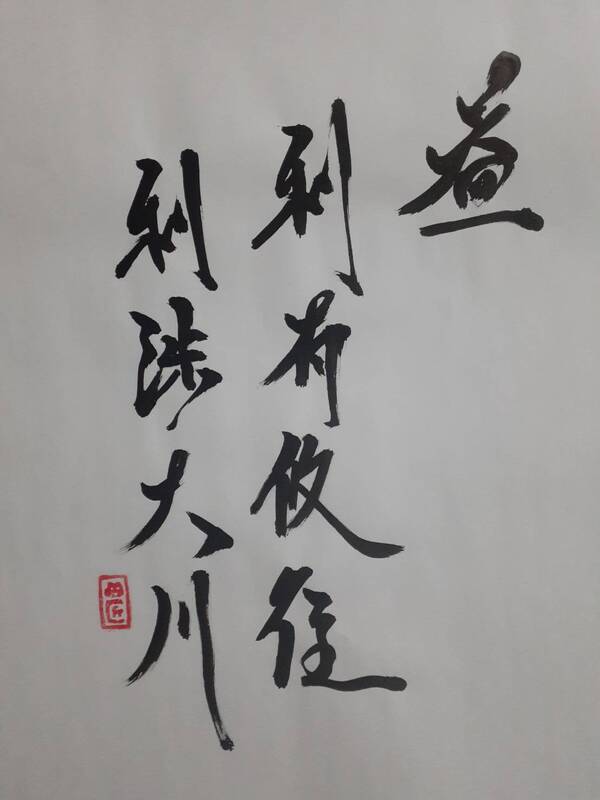 益
利有攸往
利涉大川